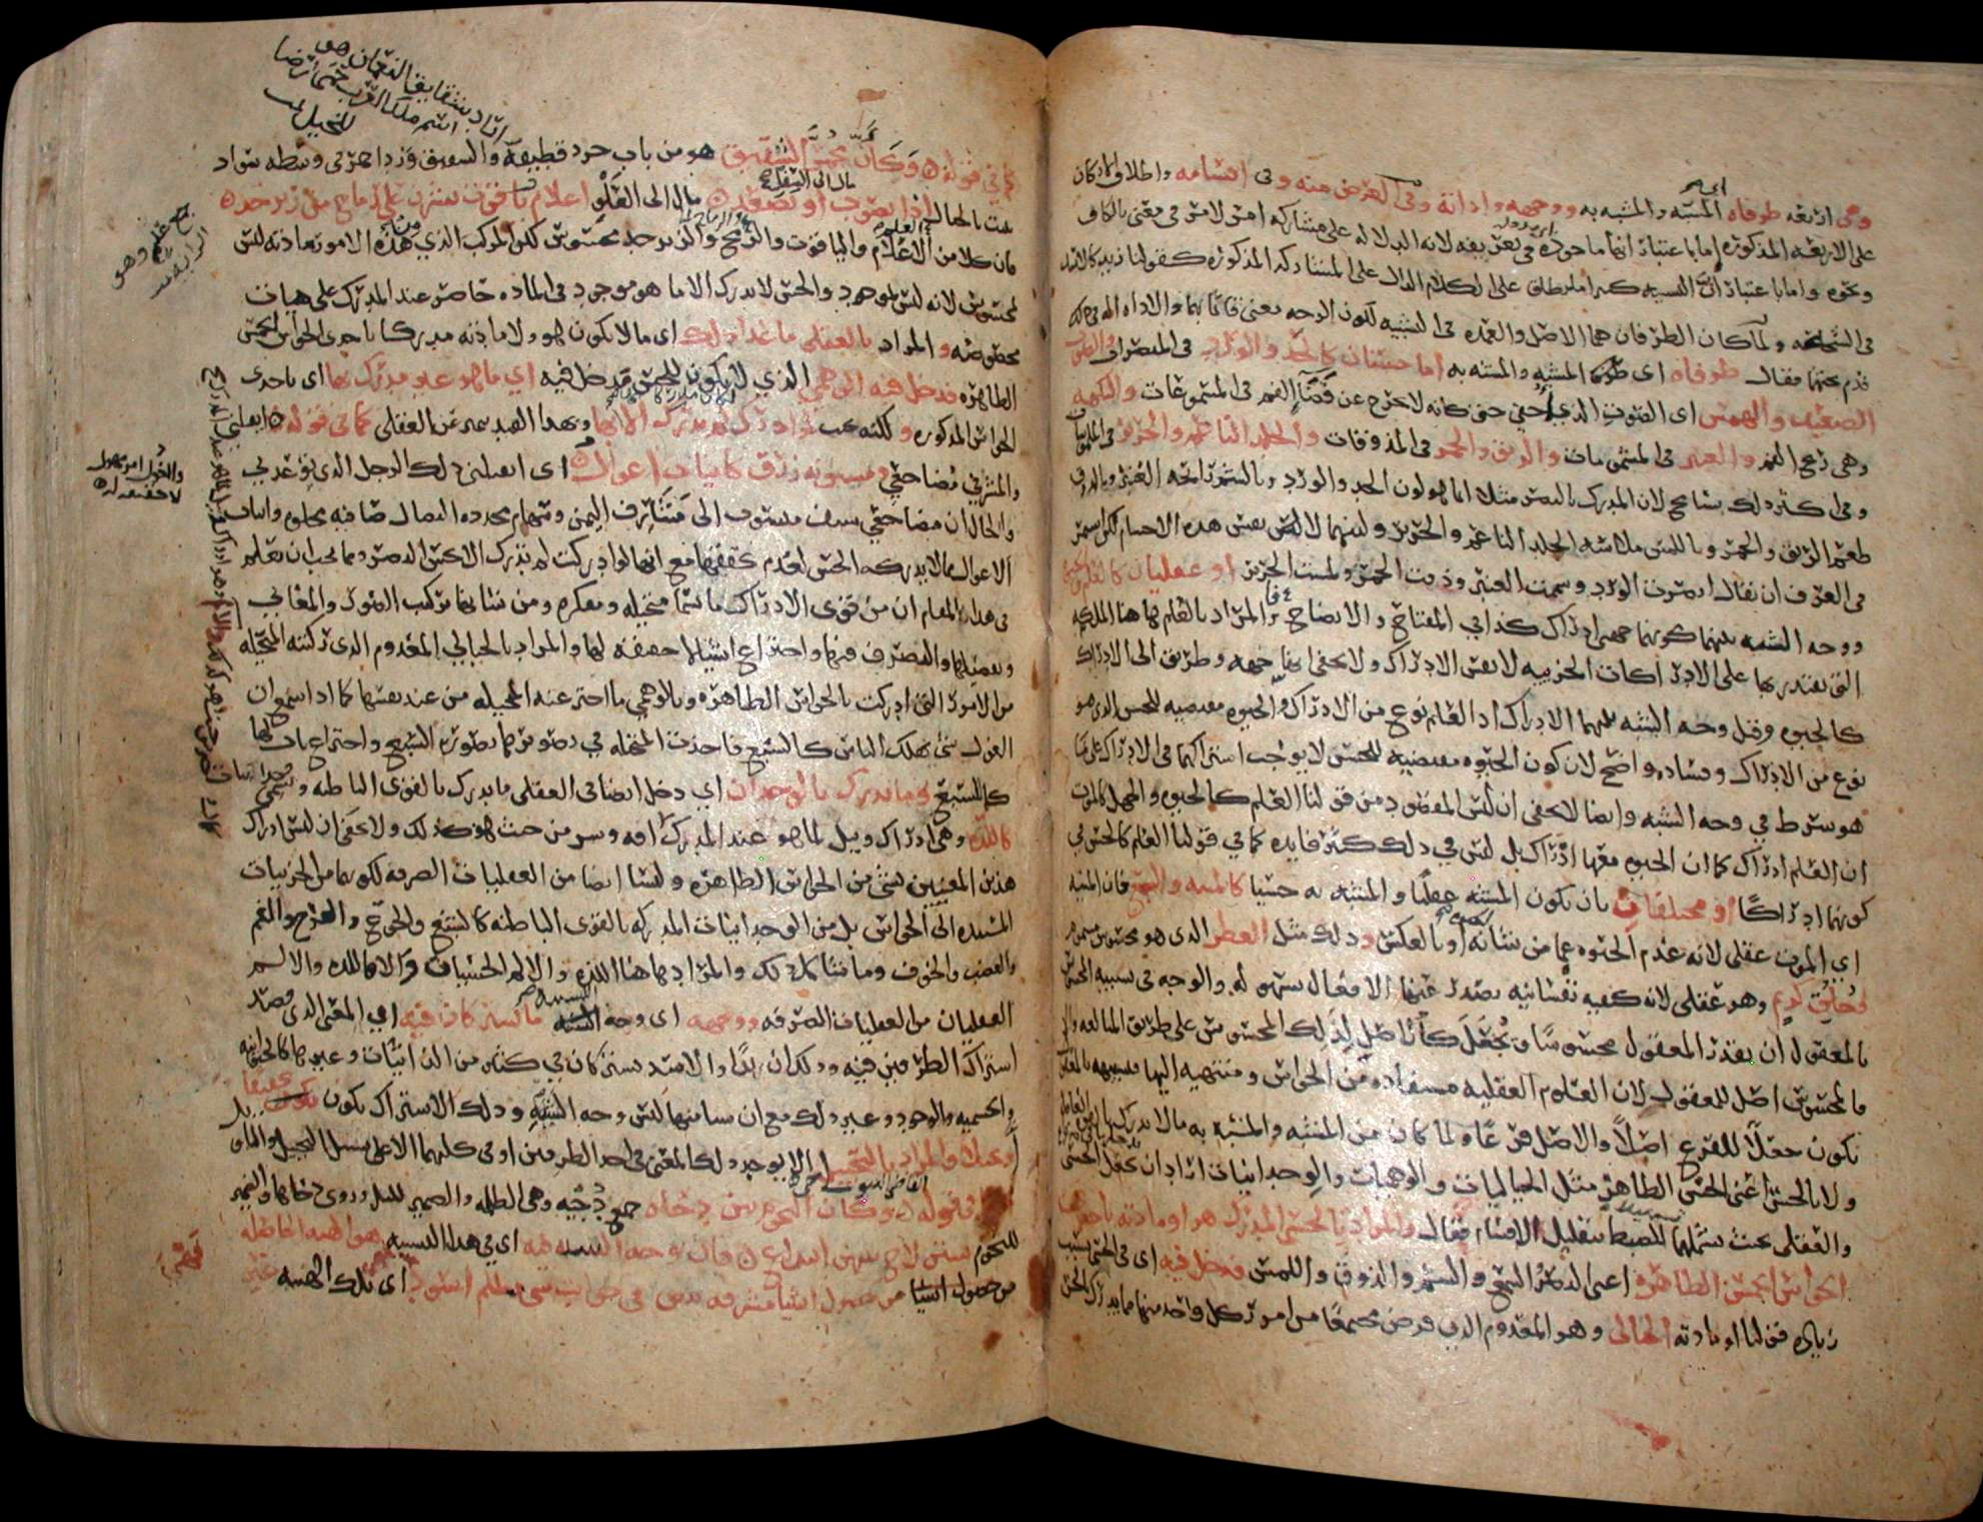 وهى اربعه طرفاه المشبه والمشبه به ووجهه واداته وفى الغرض منه وفى اقسامه واطلاق الاركان
على الاربعه المذكوره اما باعتبار انها ماخوذه فى تعريفه لانه الدلاله على مشاركه امر لامر فى معنى بالكاف
ونحوه واما باعتبار ان التشبيه كثيرا ما يطلق على الكلام الدال على المشاركه المذكوره كقولنا زيد كالاسد
فى الشجاعه ولما كان الطرفان هما الاصل والعمده فى التشبيه لكون الوجه معنى قائما بهما والاداه اله فى ذلك
قدم بحثهما فقال طرفاه اى المشبه والمشبه به اما حسيان كالخد والورد فى المبصرات والصوت
الضعيف والهمس اى الصوت الذى اخفى حتى كانه لا يخرج عن فضا الفم فى المسموعات والنكهه
وهى ريح الفم والعنبر فى المشمومات والريق والخمر فى المذوقات والجلد الناعم والحرير فى الملموسات
وفى اكثر ذلك تسامح لان المدرك بالبصر مثلا انما هو لون الخد والورد وبالشم رايحه العنبر وبالذوق
طعم الريق والخمر وباللمس ملاسه الجلد الناعم والحرير ولينهما لا نفس هذه الاجسام لكن استمر
فى العرف ان يقال ابصرت الورد وشممت العنبر وذقت الخمر ولمست الحرير او عقليان كالعلم والحيوه
ووجه الشبه بينهما كونهما جهتى ادراك كذا فى المفتاح والايضاح فالمراد بالعلم هاهنا الملكه
التى يقتدر بها على الادراكات الجزييه لا نفس الادراك ولا يخفى انها جهه وطريق الى الادراك
كالحيوه وقيل وجه الشبه بينهما الادراك اذ العلم نوع من الادراك والحيوه مقتضيه للحس الذى هو
نوع من الادراك وفساده واضح لان كون الحيوه مقتضيه للحس لا يوجب اشتراكهما فى الادراك على ما
هو شرط فى وجه الشبه وايضا لا يخفى ان ليس المقصود من قولنا العلم كالحيوه والجهل كالموت
ان العلم ادراك كما ان الحيوه معها ادراك بل ليس فى ذلك كثير فايده كما فى قولنا العلم كالحس فى
كونهما ادراكا او مختلفان بان يكون المشبه عقليا والمشبه به حسيا كالمنيه والسبع فان المنيه
اى الموت عقلى لانه عدم الحيوه عما من شانه او بالعكس وذلك مثل العطر الذى هو محسوس مشموم
وخلق كريم وهو عقلى لانه كيفيه نفسانيه يصدر عنها الافعال بسهوله والوجه فى تشبيه المحسوس
بالمعقول ان يقدر المعقول محسوسا ويجعل كالاصل لذلك المحسوس على طريق المبالغه والا
فالمحسوس اصل للمعقول لان العلوم العقليه مستفاده من الحواس ومنتهيه اليها فتشبيهه بالمعقول
يكون جعلا للفرع اصلا والاصل فرعا ولما كان من المشبه والمشبه به ما لا يدرك بالقوه العاقله
ولا بالحس اعنى الحس الظاهر مثل الخياليات والوهميات والوجدانيات اراد ان يجعل الحسى
والعقلى بحيث يشملهما للضبط بتقليل الاقسام فقال والمراد بالحسى المدرك هو او مادته باحدى
الحواس الخمس الظاهره اعنى البصر والسمع والشم والذوق واللمس فدخل فيه اى فى الحسى بسبب
زياده قولنا او مادته الخيالى وهو المعدوم الذى فرض مجتمعا من امور كل واحد منها مما يدرك بالحس
كما فى قوله وكان محمر الشقيق هو من باب جرد قطيفه والشقيق ورد احمر فى وسطه سواد
ينبت بالجبال اذا تصوب او تصعد مال الى السفل مال الى العلو اعلام ياقوت نشرن على رماح من زبرجد
فان كلا من الاعلام والياقوت والرمح والزبرجد محسوس لكن المركب الذى هذه الامور مادته ليس
بمحسوس لانه ليس بموجود والحس لا يدرك الا ما هو موجود فى الماده حاضر عند المدرك على هيات
مخصوصه والمراد بالعقلى ما عدا ذلك اى ما لا يكون هو ولا مادته مدركا باحدى الحواس الخمس
الظاهره فدخل فيه الوهمى الذى لا يكون للحس مدخل فيه اى ما هو غير مدرك بها اى باحدى
الحواس المذكوره و لكنه بحيث لو ادرك لم يدرك الا بها وبهذا القيد يتميز عن العقلى كما فى قوله ايقتلنى
والمشرفى مضاجعى ومسنونه زرق كانياب اغوال اى ايقتلنى ذلك الرجل الذى يوعدنى
والحال ان مضاجعى سيف منسوب الى مشارف اليمن وسهام محدده النصال صافيه مجلوه وانياب
الاغوال مما لا يدركه الحس لعدم تحققها مع انها لو ادركت لم تدرك الا بحس البصر ومما يجب ان يعلم
فى هذا المقام ان من قوى الادراك ما يسمى متخيله ومفكره ومن شانها تركيب الصور والمعانى
وتفصيلها والتصرف فيها واختراع اشيا لا حقيقه لها والمراد بالخيالى المعدوم الذى ركبته المتخيله
من الامور التى ادركت بالحواس الظاهره وبالوهمى ما اخترعته المتخيله من عند نفسها كما اذا سمع ان
الغول شى يهلك الناس كالسبع فاخذت المتخيله فى تصويرها بصوره السبع واختراع ناب لها
كما للسبع وما يدرك بالوجدان اى دخل ايضا فى العقلى ما يدرك بالقوى الباطنه ويسمى وجدانيات
كاللذه وهى ادراك ونيل لما هو عند المدرك افه وشر من حيث هو كذلك ولا يخفى ان ليس ادراك
هذين المعنيين بشى من الحواس الظاهره وليسا ايضا من العقليات الصرفه لكونهما من الجزييات
المستنده الى الحواس بل من الوجدانيات المدركه بالقوى الباطنه كالشبع والجوع والفرح والغم
والغضب والخوف وما شاكل ذلك والمراد هاهنا اللذه والالم الحسيان والا فاللذه والالم
العقليان من العقليات الصرفه ووجهه اى وجه التشبيه ما يشتركان فيه اى المعنى الذى قصد
اشتراك الطرفين فيه وذلك ان زيدا والاسد يشتركان فى كثير من الذاتيات وغيرها كالحيوانيه
والجسميه والوجود وغير ذلك مع ان شيا منها ليس وجه الشبه وذلك الاشتراك يكون تحقيقا
او تخييلا والمراد بالتخييلى ان لا يوجد ذلك المعنى فى احد الطرفين او فى كليهما الا على سبيل التخييل والتاويل
نحو ما فى قوله وكان النجوم بين دجاه جمع دجيه وهى الظلمه والضمير لليل وروى دجاها والضمير
للنجوم سنن لاح بينهن ابتداع فان وجه الشبه فيه اى فى هذا التشبيه هو الهييه الحاصله
من حصول اشيا مشرقه بيض فى جوانب شى مظلم اسود اى تلك الهييه
جمع علم وهو الرايه
والغول امر مهول لا حقيقه له